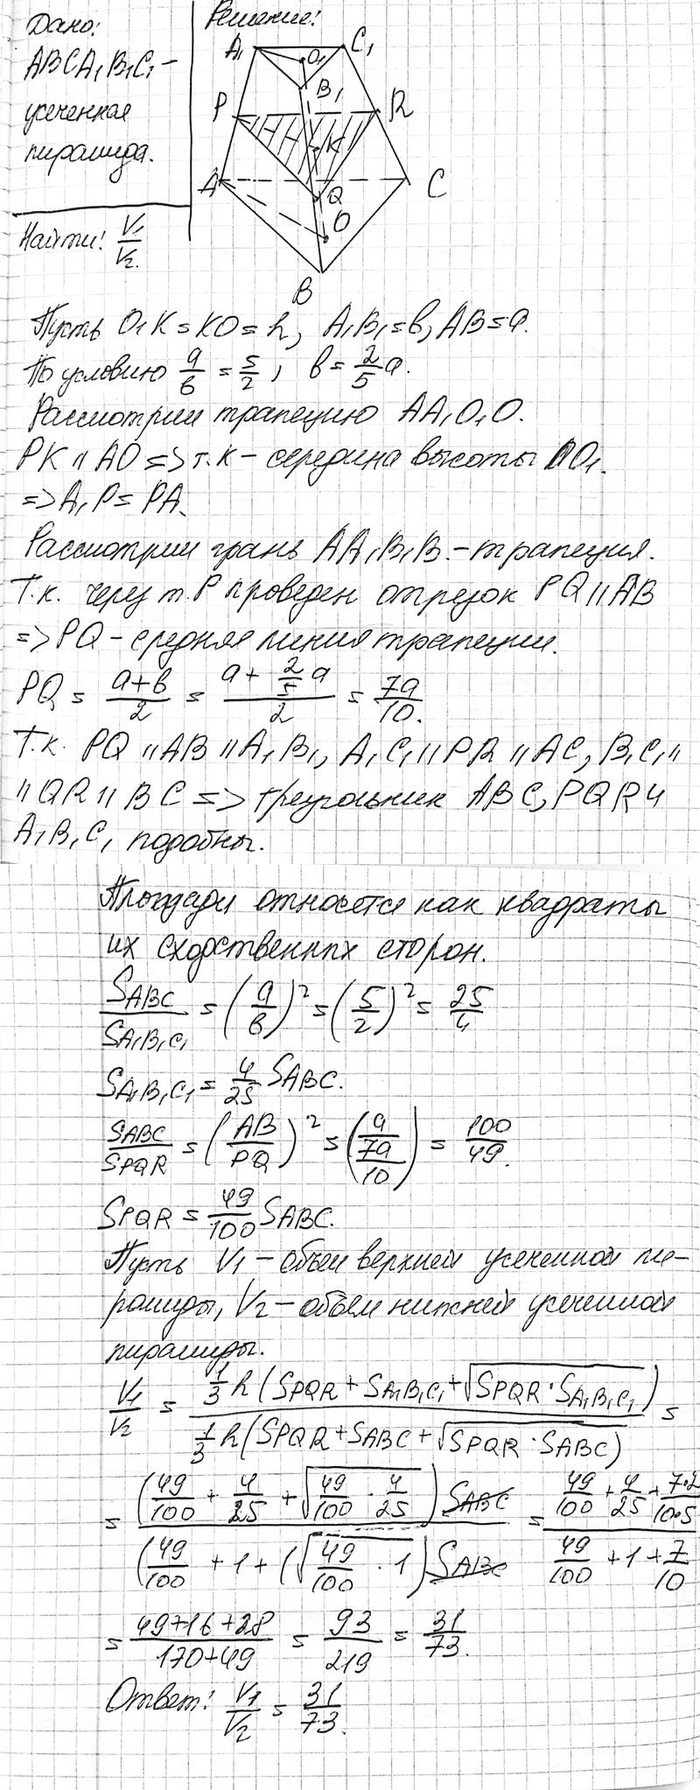 Дано:
ABCA₁B₁C₁ –
усеченная
пирамида.
Найти: V₁/V₂.
Решение:
A₁ O₁ C₁
B₁
P R
K
A Q C
O
B
Пусть O₁K = KO = h, A₁B₁ = в, AB = a.
По условию a/в = 5/2; в = 2/5 a.
Рассмотрим трапецию AA₁O₁O.
PK ıı AO => т. K – середина высоты OO₁.
=> A₁P = PA.
Рассмотрим грань AA₁B₁B. – трапеция.
Т.к. через т. P проведен отрезок PQ ıı AB
=> PQ – средняя линия трапеции.
PQ = (a+в)/2 = (a + 2/5 a)/2 = 7a/10.
Т.к. PQ ıı AB ıı A₁B₁, A₁C₁ ıı PR ıı AC, B₁C₁ ıı
ıı QR ıı BC => треугольник ABC, PQR и
A₁B₁C₁ подобны.
Площади относятся как квадраты
их сходственних сторон.
S_ABC/S_A₁B₁C₁ = (a/в)² = (5/2)² = 25/4
S_A₁B₁C₁ = 4/25 S_ABC.
S_ABC/S_PQR = (AB/PQ)² = (a/(7a/10)) = 100/49.
S_PQR = 49/100 S_ABC.
Пусть V₁ – объем верхней усеченной пи-
рамиды, V₂ – объем нижней усеченной
пирамиды.
V₁/V₂ = (1/3 h (S_PQR + S_A₁B₁C₁ + √(S_PQR · S_A₁B₁C₁)))/(1/3 h (S_PQR + S_ABC + √(S_PQR · S_ABC))) =
= ((49/100 + 4/25 + √(49/100 · 4/25)) S_ABC)/((49/100 + 1 + (√(49/100 · 1)) S_ABC) = (49/100 + 4/25 + 7·2/10·5)/(49/100 + 1 + 7/10)
= (49+16+28)/(170+49) = 93/219 = 31/73.
Ответ: V₁/V₂ = 31/73.